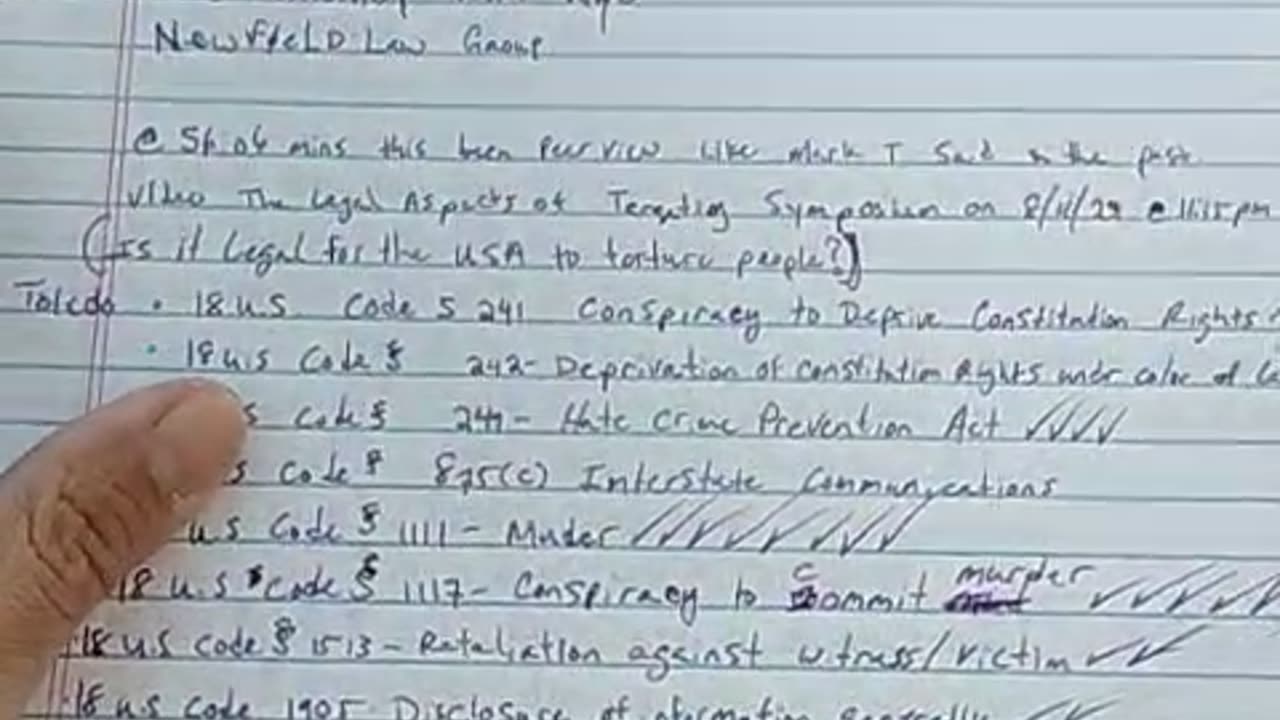 Newfield Law Group
@ 56:06 mins this been Peer view like Mark T Said in the past
Video The Legal Aspects of Targeting Symposium on 8/11/29 @ 11:15 pm
(Is it Legal for the USA to torture people?)
Toledo • 18 U.S Code S 241 Conspiracy to Deprive Constitution Rights
• 18 u.s Code § 242- Deprivation of constitution Rights under color of
s Code § 249- Hate Crime Prevention Act ✓✓✓✓
s Code § 875(c) Interstate Communications
u.s Code § 1111- Muder ✓✓✓✓✓✓✓✓
18 u.s code § 1117- Conspiracy to commit murder ✓✓✓✓✓
18 u.s code § 1513- Retaliation against witness/victim ✓✓
18 u.s code 1905 Disclosure of information generally ✓✓